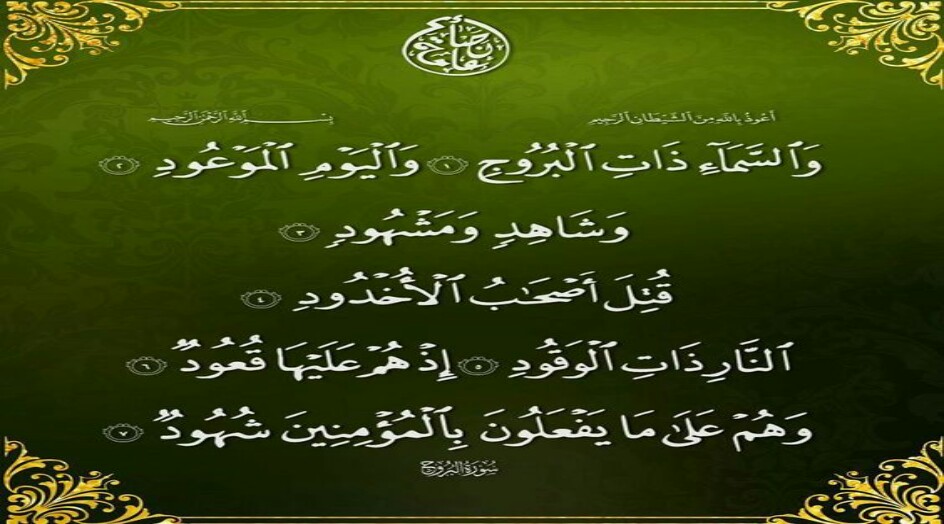 أعوذ بالله من الشيطان الرجيم بسم الله الرحمن الرحيم
وَٱلسَّمَآءِ ذَاتِ ٱلْبُرُوجِ ١ وَٱلْيَوْمِ ٱلْمَوْعُودِ ٢
وَشَاهِدٍ وَمَشْهُودٍ ٣
قُتِلَ أَصْحَٰبُ ٱلْأُخْدُودِ ٤
ٱلنَّارِ ذَاتِ ٱلْوَقُودِ ٥ إِذْ هُمْ عَلَيْهَا قُعُودٌ ٦
وَهُمْ عَلَىٰ مَا يَفْعَلُونَ بِٱلْمُؤْمِنِينَ شُهُودٌ ٧
سورة البروج